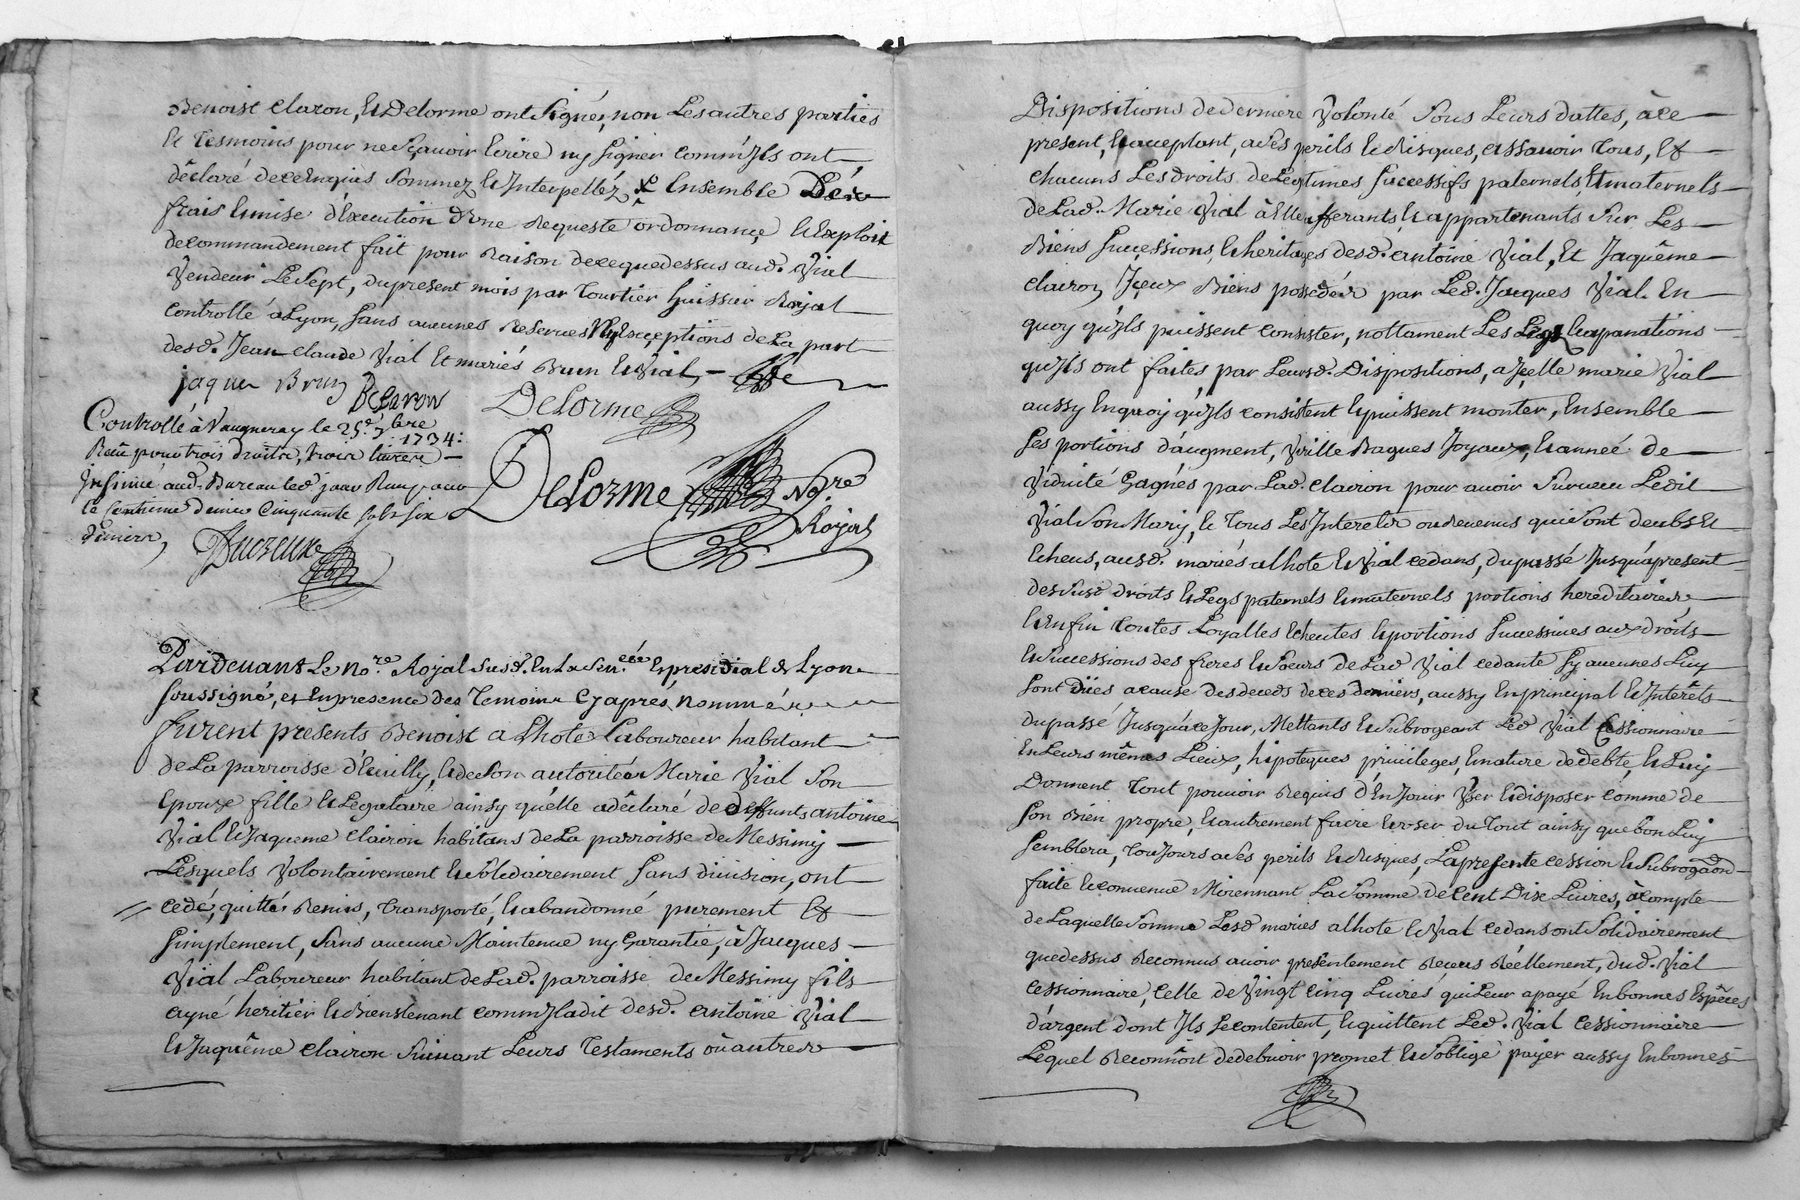 Benoist Clairon, & Delorme ont signé, non Les autres parties
Et Tesmoins pour ne sçavoir Ecrire ny signer comm'Ils ont
déclaré de ce Enquis Sommez & Interpellez Ensemble
frais & mise d'Execution d'Une Requeste ordonnance & Exploit
de commandement fait pour Raison de ce que dessus aud. Vial
Vendeur Le Sept, du present mois par Tourtier huissier Royal
Controllé à Lyon, sans aucunes Reserves Ny Exceptions de La part
desd. Jean Claude Vial Et mariés Brun & Vial,
jaque Brun BClaron Delorme
Controllé à Vaugneray le 25e 7bre 1734:
Receu pour trois droits, trois livres
Insinué aud. Bureau led jour Reçu pour
le Centieme denier Cinquante sols six
deniers,
Delorme No.re
Royal
Pardevant Le No.re Royal susd. En La Sen.cée & presidial de Lyon
soussigné, et En presence des Temoins Cy après Nommés
furent presents Benoist Alhote Laboureur habitant
de La parroisse d'Euilly, & de son autorité Marie Vial Son
Epouse fille & Legataire ainsy qu'elle a déclaré de deffunts antoine
Vial & Jaqueme Clairon habitans de La parroisse de Messimy
Lesquels Volontairement & solidairement sans division, ont
cédé, quitté Remis, Transporté, & abandonné purement Et
simplement, sans aucune Maintenue ny Garantie, à Jacques
Vial Laboureur habitant de Lad. parroisse de Messimy fils
ayné heritier & Bienstenant comm'Il a dit desd. Antoine Vial
& Jaquême Clairon suivant Leurs Testaments ou autres
Dispositions de derniere Volonté sous Leurs dattes, à ce
present, & acceptant, a ses perils & Risques, assavoir Tous, Et
chacuns Les droits de Legitimes successifs paternels & maternels
de Lad. Marie Vial à Elle afferants & appartenants Sur Les
Biens successions, & heritages desd. Antoine Vial, Et Jaquême
Clairon Iceux Biens possédés par Led. Jacques Vial En
quoy qu'Ils puissent consister, nottament Les Legs & apanations
qu'Ils ont faites, par Leursd. Dispositions, a Icelle marie Vial
aussy Enquoy qu'Ils consistent & puissent monter, Ensemble
Les portions d'augment, Vville Bagues Joyaux, & année de
Viduité Gagnés par Lad. Clairon pour avoir Survecu Ledit
Vial son Mary, & Tous Les Interets ou Revenus qui sont deubs &
Echeus, ausd. mariés alhote & Vial cedans, du passé Jusqu'à present
desdits droits & Legs paternels & maternels portions hereditaires,
& Enfin Toutes Loyalles Echeutes & portions successives aux droits
& successions des freres & Sœurs de Lad Vial cedante sy aucunes Luy
sont Dües a cause des deceds de ces derniers, aussy En principal & Interêts
du passé Jusqu'à ce Jour, Mettants & subrogeant Led Vial Cessionnaire
En Leurs mêmes Lieux, hipoteques privileges, & nature de debte, & Luy
Donnent Tout pouvoir Requis d'En Jouir User & disposer comme de
son Bien propre, & autrement faire & User du Tout ainsy que bon Luy
semblera, Toujours a ses perils & Risques, La presente cession & subrogaôn
faite & convenue Moiennant La Somme de Cent Dix Livres, à compte
de Laquelle Somme Lesd maries alhote & Vial cedans ont Solidairement
que dessus Reconnus avoir presentement Receus Réellement, dud. Vial
cessionnaire, Celle de Vingt Cinq Livres qui Leur a payé En bonnes Espêces
d'argent dont Ils se contentent, & quittent Led. Vial cessionnaire
Lequel Reconnoit de debvoir promet & s'oblige payer aussy En bonnes